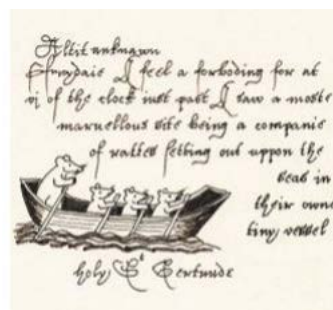 Altit unknawn
I feel a forboding for at
vj of the clock iust past I saw a moste
maruellous site being a companie
of rattes setting out uppon the
seas in
their owne
tiny vessel
holy St Gertrude